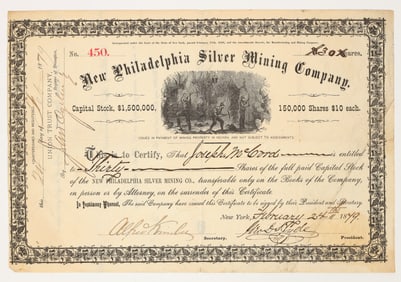 Incorporated under the Laws of the State of New York,
No. 450.
X30X Shares.
New Philadelphia Silver Mining Company.
Capital Stock, $1,500,000.
150,000 Shares $10 each.
ISSUED IN PAYMENT OF MINING PROPERTY IN NEVADA, AND NOT SUBJECT TO ASSESSMENTS
This is to Certify, That Joseph McCord is entitled
to Thirty Shares of the full paid Capital Stock
of the NEW PHILADELPHIA SILVER MINING CO., transferable only on the Books of the Company,
in person or by Attorney, on the surrender of this Certificate.
In Testimony Whereof, The said Company have caused this Certificate to be signed by their President and Secretary
New York, February 24th 1879.
Secretary.
President.
UNION TRUST COMPANY,